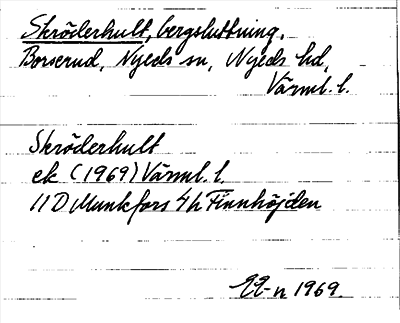 Skröderhult, bergsluttning.
Borserud, Nyeds sn, Nyeds hd,
Värml. l.
Skröderhult
ek (1969) Värml. l.
11 D Munkfors 4h Finnhöjden
1969.